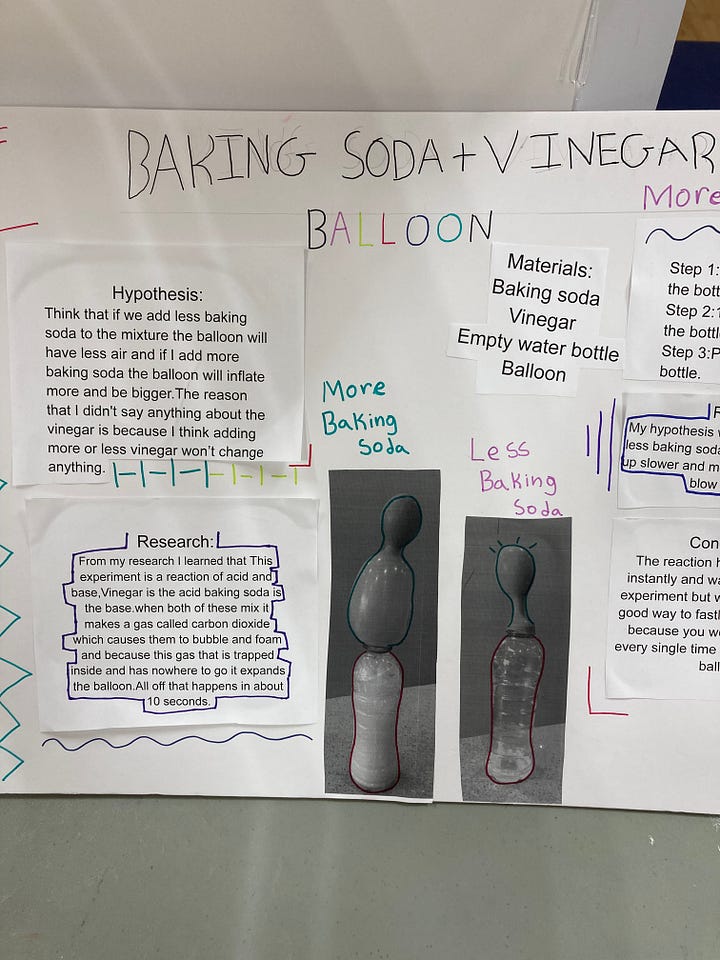 BAKING SODA + VINEGAR
BALLOON
Hypothesis:
Think that if we add less baking
soda to the mixture the balloon will
have less air and if I add more
baking soda the balloon will inflate
more and be bigger.The reason
that I didn't say anything about the
vinegar is because I think adding
more or less vinegar won't change
anything.
Research:
From my research I learned that This
experiment is a reaction of acid and
base,Vinegar is the acid baking soda is
the base.when both of these mix it
makes a gas called carbon dioxide
which causes them to bubble and foam
and because this gas that is trapped
inside and has nowhere to go it expands
the balloon.All off that happens in about
10 seconds.
More
Baking
Soda
Less
Baking
Soda
Materials:
Baking soda
Vinegar
Empty water bottle
Balloon
More
Step 1:
the bott
Step 2:
the bottl
Step 3:P
bottle.
My hypothesis
less baking soda
up slower and m
blow
Con
The reaction h
instantly and wa
experiment but w
good way to fast
because you w
every single time
ball